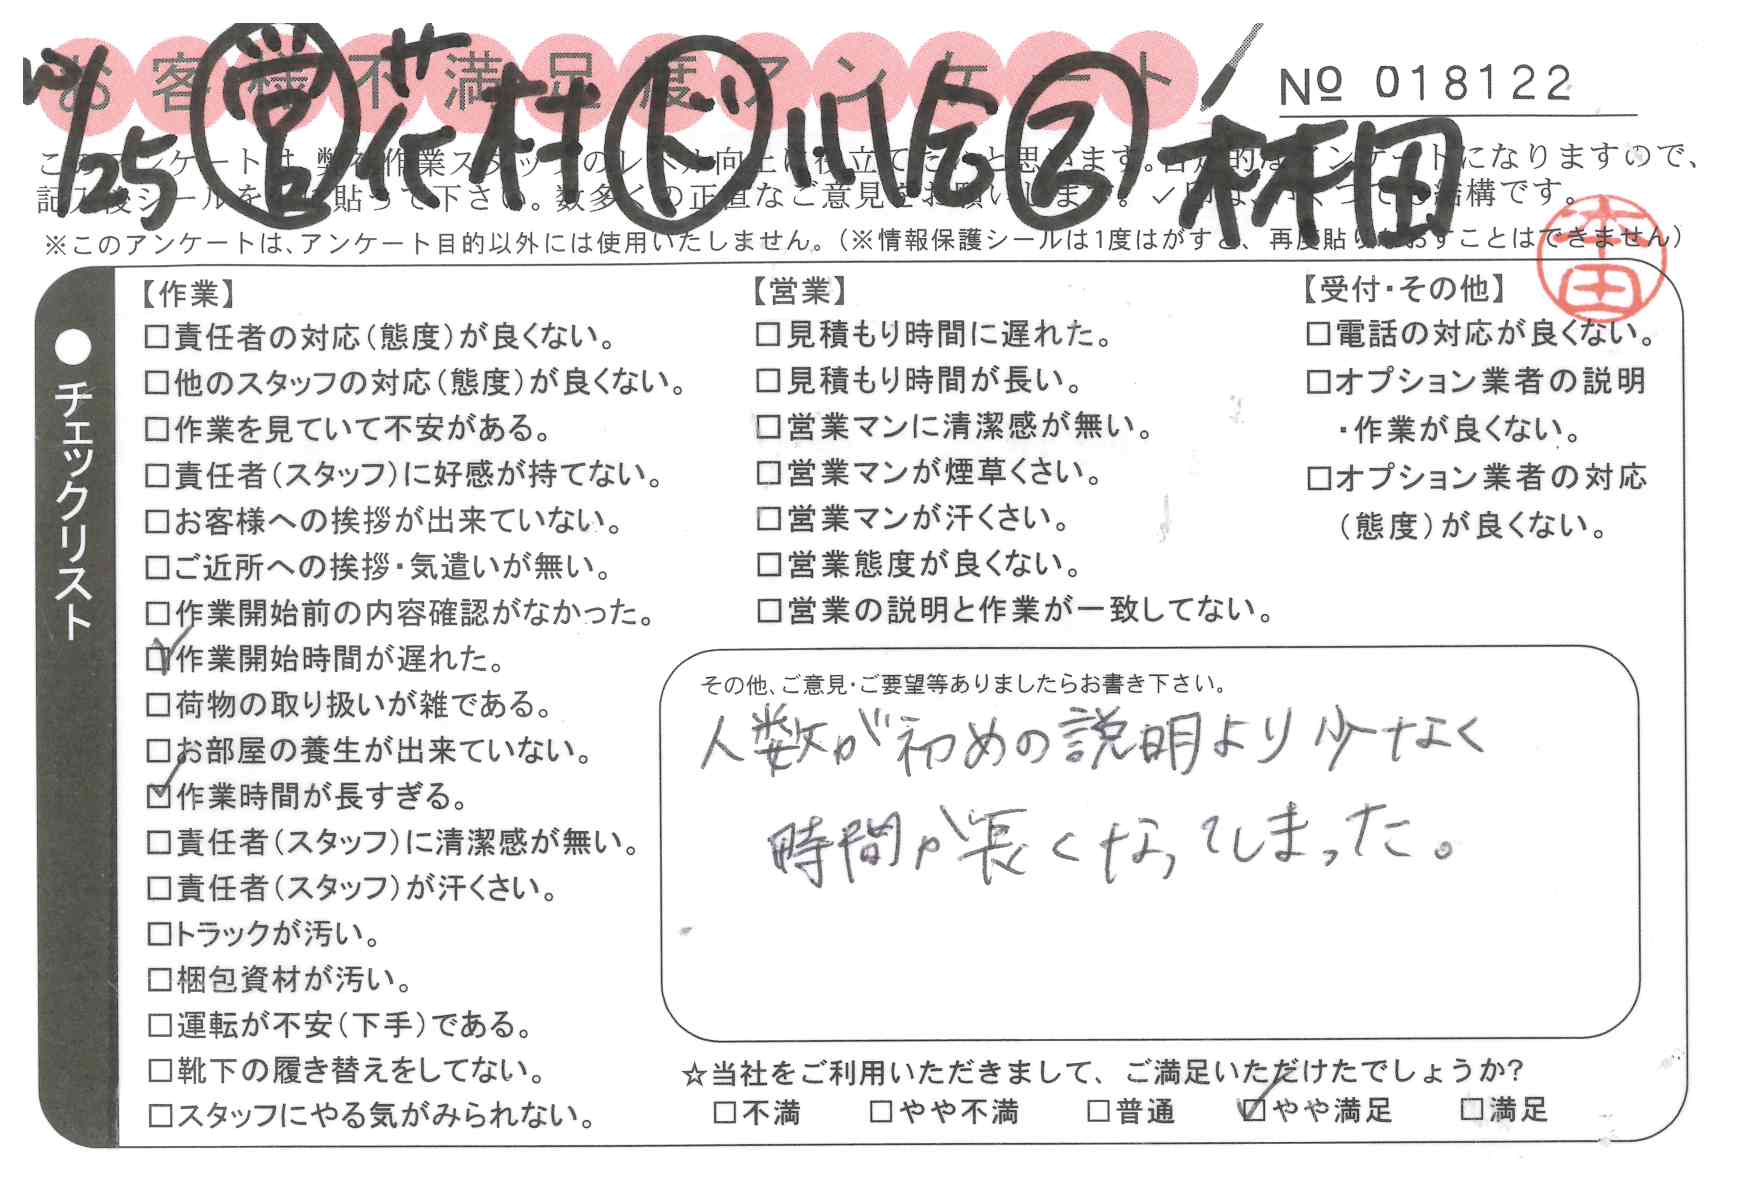 お客様不満足度アンケート
No 018122
/25 営 花村 ド 小谷 2 林田
このアンケートは、弊社作業スタッフのレベル向上に役立てたいと思います。否定的なアンケートになりますので、
記入後シールを 貼って下さい。数多くの正直なご意見をお願いします。✓印は、いくつでも結構です。
※このアンケートは、アンケート目的以外には使用いたしません。(※情報保護シールは1度はがすと、再度貼りなおすことはできません)
本田
●チェックリスト
【作業】
□責任者の対応(態度)が良くない。
□他のスタッフの対応(態度)が良くない。
□作業を見ていて不安がある。
□責任者(スタッフ)に好感が持てない。
□お客様への挨拶が出来ていない。
□ご近所への挨拶・気遣いが無い。
□作業開始前の内容確認がなかった。
☑作業開始時間が遅れた。
□荷物の取り扱いが雑である。
□お部屋の養生が出来ていない。
☑作業時間が長すぎる。
□責任者(スタッフ)に清潔感が無い。
□責任者(スタッフ)が汗くさい。
□トラックが汚い。
□梱包資材が汚い。
□運転が不安(下手)である。
□靴下の履き替えをしてない。
□スタッフにやる気がみられない。
【営業】
□見積もり時間に遅れた。
□見積もり時間が長い。
□営業マンに清潔感が無い。
□営業マンが煙草くさい。
□営業マンが汗くさい。
□営業態度が良くない。
□営業の説明と作業が一致してない。
【受付・その他】
□電話の対応が良くない。
□オプション業者の説明
・作業が良くない。
□オプション業者の対応
(態度)が良くない。
その他、ご意見・ご要望等ありましたらお書き下さい。
人数が初めの説明より少なく
時間が長くなってしまった。
☆当社をご利用いただきまして、ご満足いただけたでしょうか?
□不満 □やや不満 □普通 ☑やや満足 □満足